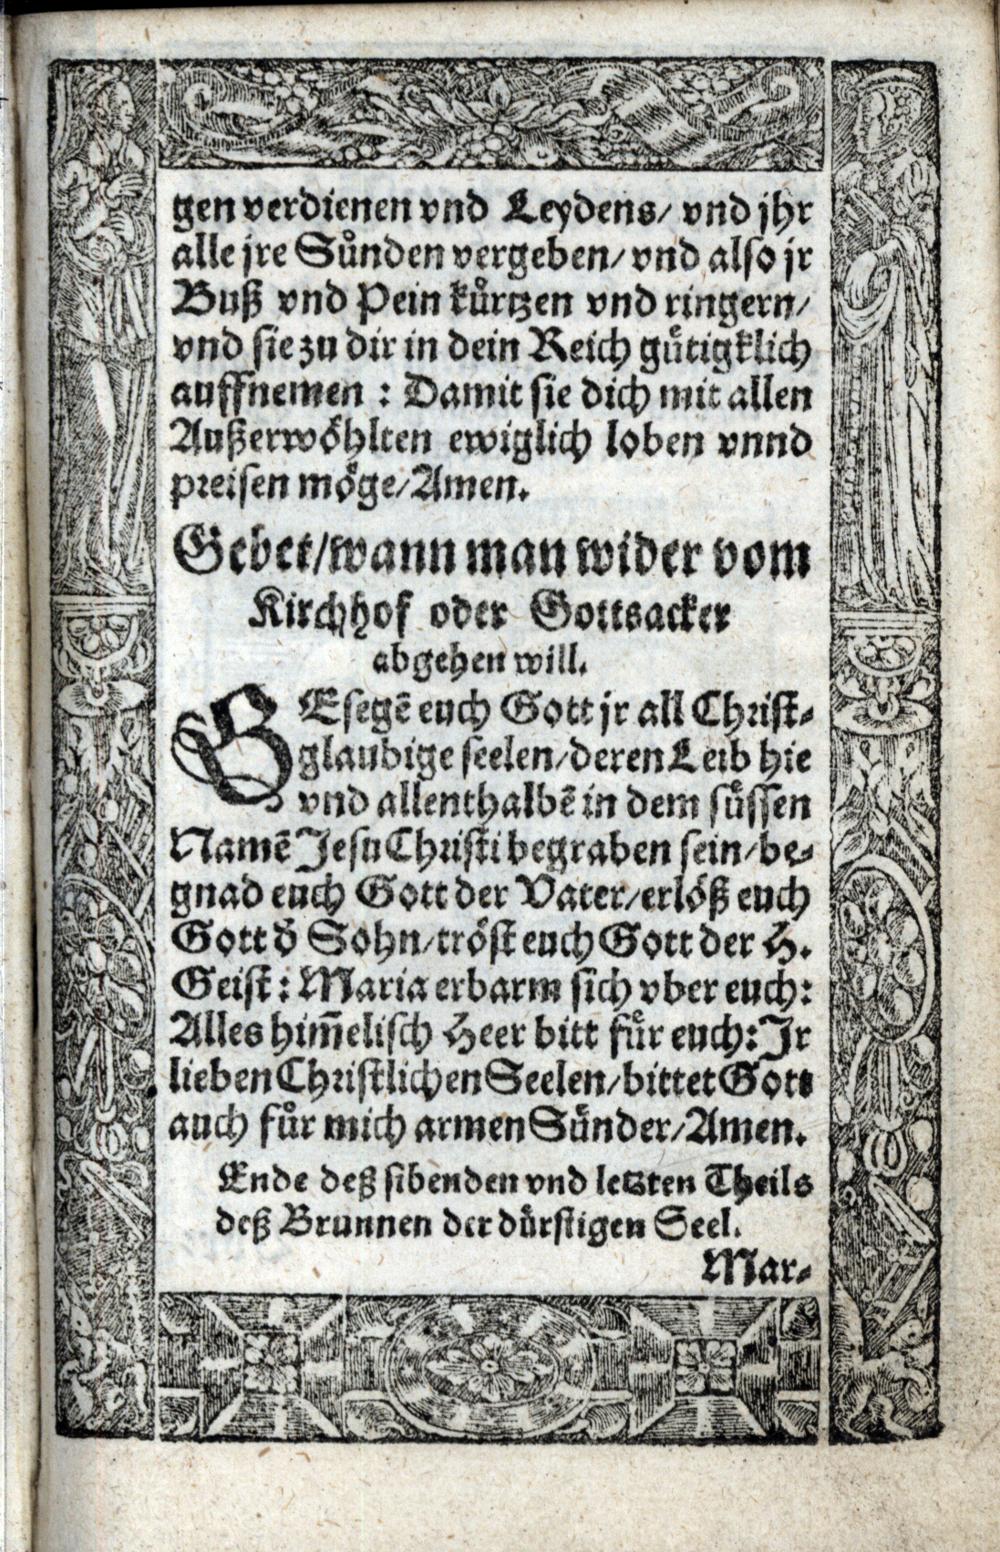 gen verdienen vnd Leydens/ vnd jhr
alle jre Sůnden vergeben/ vnd also jr
Buß vnd Pein kůrtzen vnd ringern/
vnd sie zu dir in dein Reich gůtigklich
auffnemen : Damit sie dich mit allen
Außerwöhlten ewiglich loben vnnd
preisen möge/ Amen.
Gebet/ wann man wider vom
Kirchhof oder Gottsacker
abgehen will.
GEsegē euch Gott jr all Christ⸗
glaubige seelen/ deren Leib hie
vnd allenthalbē in dem sůssen
Namē Jesu Christi begraben sein/ be⸗
gnad euch Gott der Vater/ erlöß euch
Gott d̄ Sohn/ tröst euch Gott der H.
Geist : Maria erbarm sich vber euch :
Alles him̄elisch Heer bitt fůr euch : Jr
lieben Christlichen Seelen/ bittet Gott
auch fůr mich armen Sůnder/ Amen.
Ende deß sibenden vnd letzten Theils
deß Brunnen der důrstigen Seel.
Mar⸗